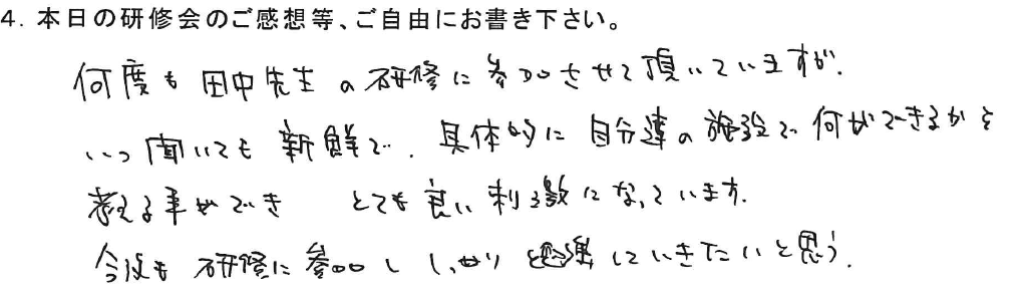 4. 本日の研修会のご感想等、ご自由にお書き下さい。
何度も田中先生の研修に参加させて頂いていますが、
いつ聞いても新鮮で、具体的に自分達の施設で何ができるかを
考える事ができ とても良い刺激になっています。
今後も研修に参加し しっかり していきたいと思う。